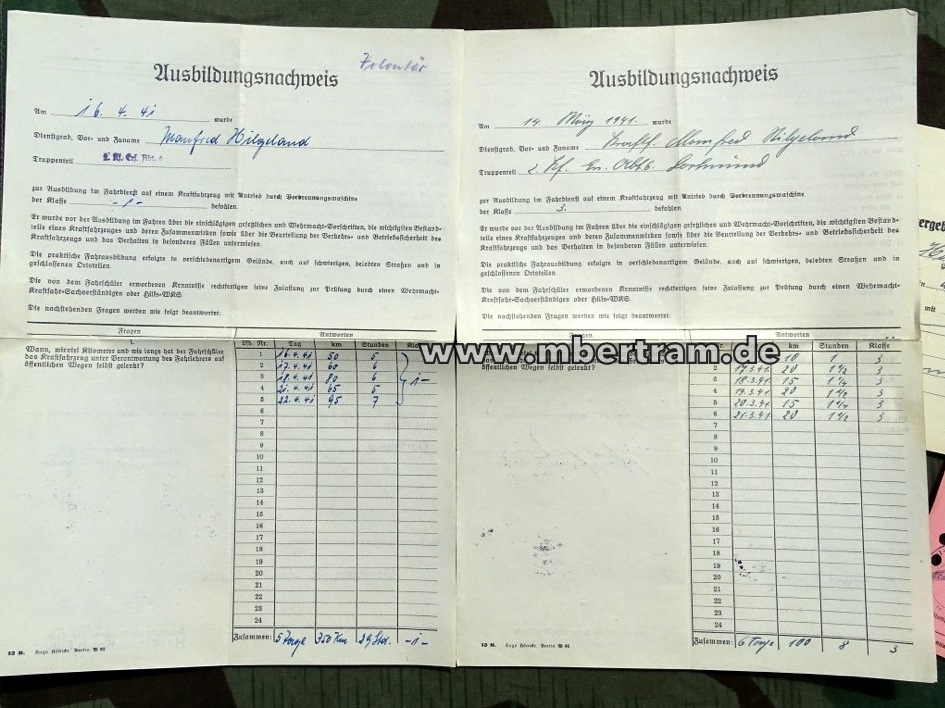 Ausbildungsnachweis
Am 16. 4. 41 wurde
Dienstgrad, Vor- und Zuname Manfred Hilgeland
Truppenteil
zur Ausbildung im Fahrdienst auf einem Kraftfahrzeug mit Antrieb durch Verbrennungsmaschine
der Klasse -1- befohlen.
Er wurde vor der Ausbildung im Fahren über die einschlägigen gesetzlichen und Wehrmacht-Vorschriften, die wichtigsten Bestand-
teile eines Kraftfahrzeuges und deren Zusammenwirken sowie über die Beurteilung der Verkehrs- und Betriebssicherheit des
Kraftfahrzeugs und das Verhalten in besonderen Fällen unterwiesen.
Die praktische Fahrausbildung erfolgte in verschiedenartigem Gelände, auch auf schwierigen, belebten Straßen und in
geschlossenen Ortsteilen.
Die von dem Fahrschüler erworbenen Kenntnisse rechtfertigen seine Zulassung zur Prüfung durch einen Wehrmacht-
Kraftfahr-Sachverständigen oder Hilfs-WKS.
Die nachstehenden Fragen werden wie folgt beantwortet:
Fragen Antworten
1.
Wann, wieviel Kilometer und wie lange hat der Fahrschüler
das Kraftfahrzeug unter Verantwortung des Fahrlehrers auf
öffentlichen Wegen selbst gelenkt?
Lfd. Nr. Tag km Stunden
1 16.4.41 50 5
2 17.4.41 60 6
3 18.4.41 80 6 -1-
4 21.4.41 65 5
5 22.4.41 95 7
6
7
8
9
10
11
12
13
14
15
16
17
18
19
20
21
22
23
24
Zusammen: 5 Tage 350 Km 29 Std. -1-
Ausbildungsnachweis
Am 14. März 1941 wurde
Dienstgrad, Vor- und Zuname Kraftf. Manfred Hilgeland
Truppenteil 2. Kf. Dortmund
zur Ausbildung im Fahrdienst auf einem Kraftfahrzeug mit Antrieb durch Verbrennungsmaschine
der Klasse 3. befohlen.
Er wurde vor der Ausbildung im Fahren über die einschlägigen gesetzlichen und Wehrmacht-Vorschriften, die wichtigsten Bestand-
teile eines Kraftfahrzeuges und deren Zusammenwirken sowie über die Beurteilung der Verkehrs- und Betriebssicherheit des
Kraftfahrzeugs und das Verhalten in besonderen Fällen unterwiesen.
Die praktische Fahrausbildung erfolgte in verschiedenartigem Gelände, auch auf schwierigen, belebten Straßen und in
geschlossenen Ortsteilen.
Die von dem Fahrschüler erworbenen Kenntnisse rechtfertigen seine Zulassung zur Prüfung durch einen Wehrmacht-
Kraftfahr-Sachverständigen oder Hilfs-WKS.
Die nachstehenden Fragen werden wie folgt beantwortet:
Antworten
öffentlichen Wegen selbst gelenkt?
km Stunden Klasse
10 1 3
2 17.3.41. 20 1 1/2 3
3 18.3.41. 15 1 1/4 3
4 19.3.41. 20 1 1/2 3
5 20.3.41. 15 1 1/4 3
6 21.3.41. 20 1 1/2 3
7
8
9
10
11
12
13
14
15
16
17
18
19
20
21
22
23
24
Zusammen: 6 Tage 100 8 3
www.mbertram.de